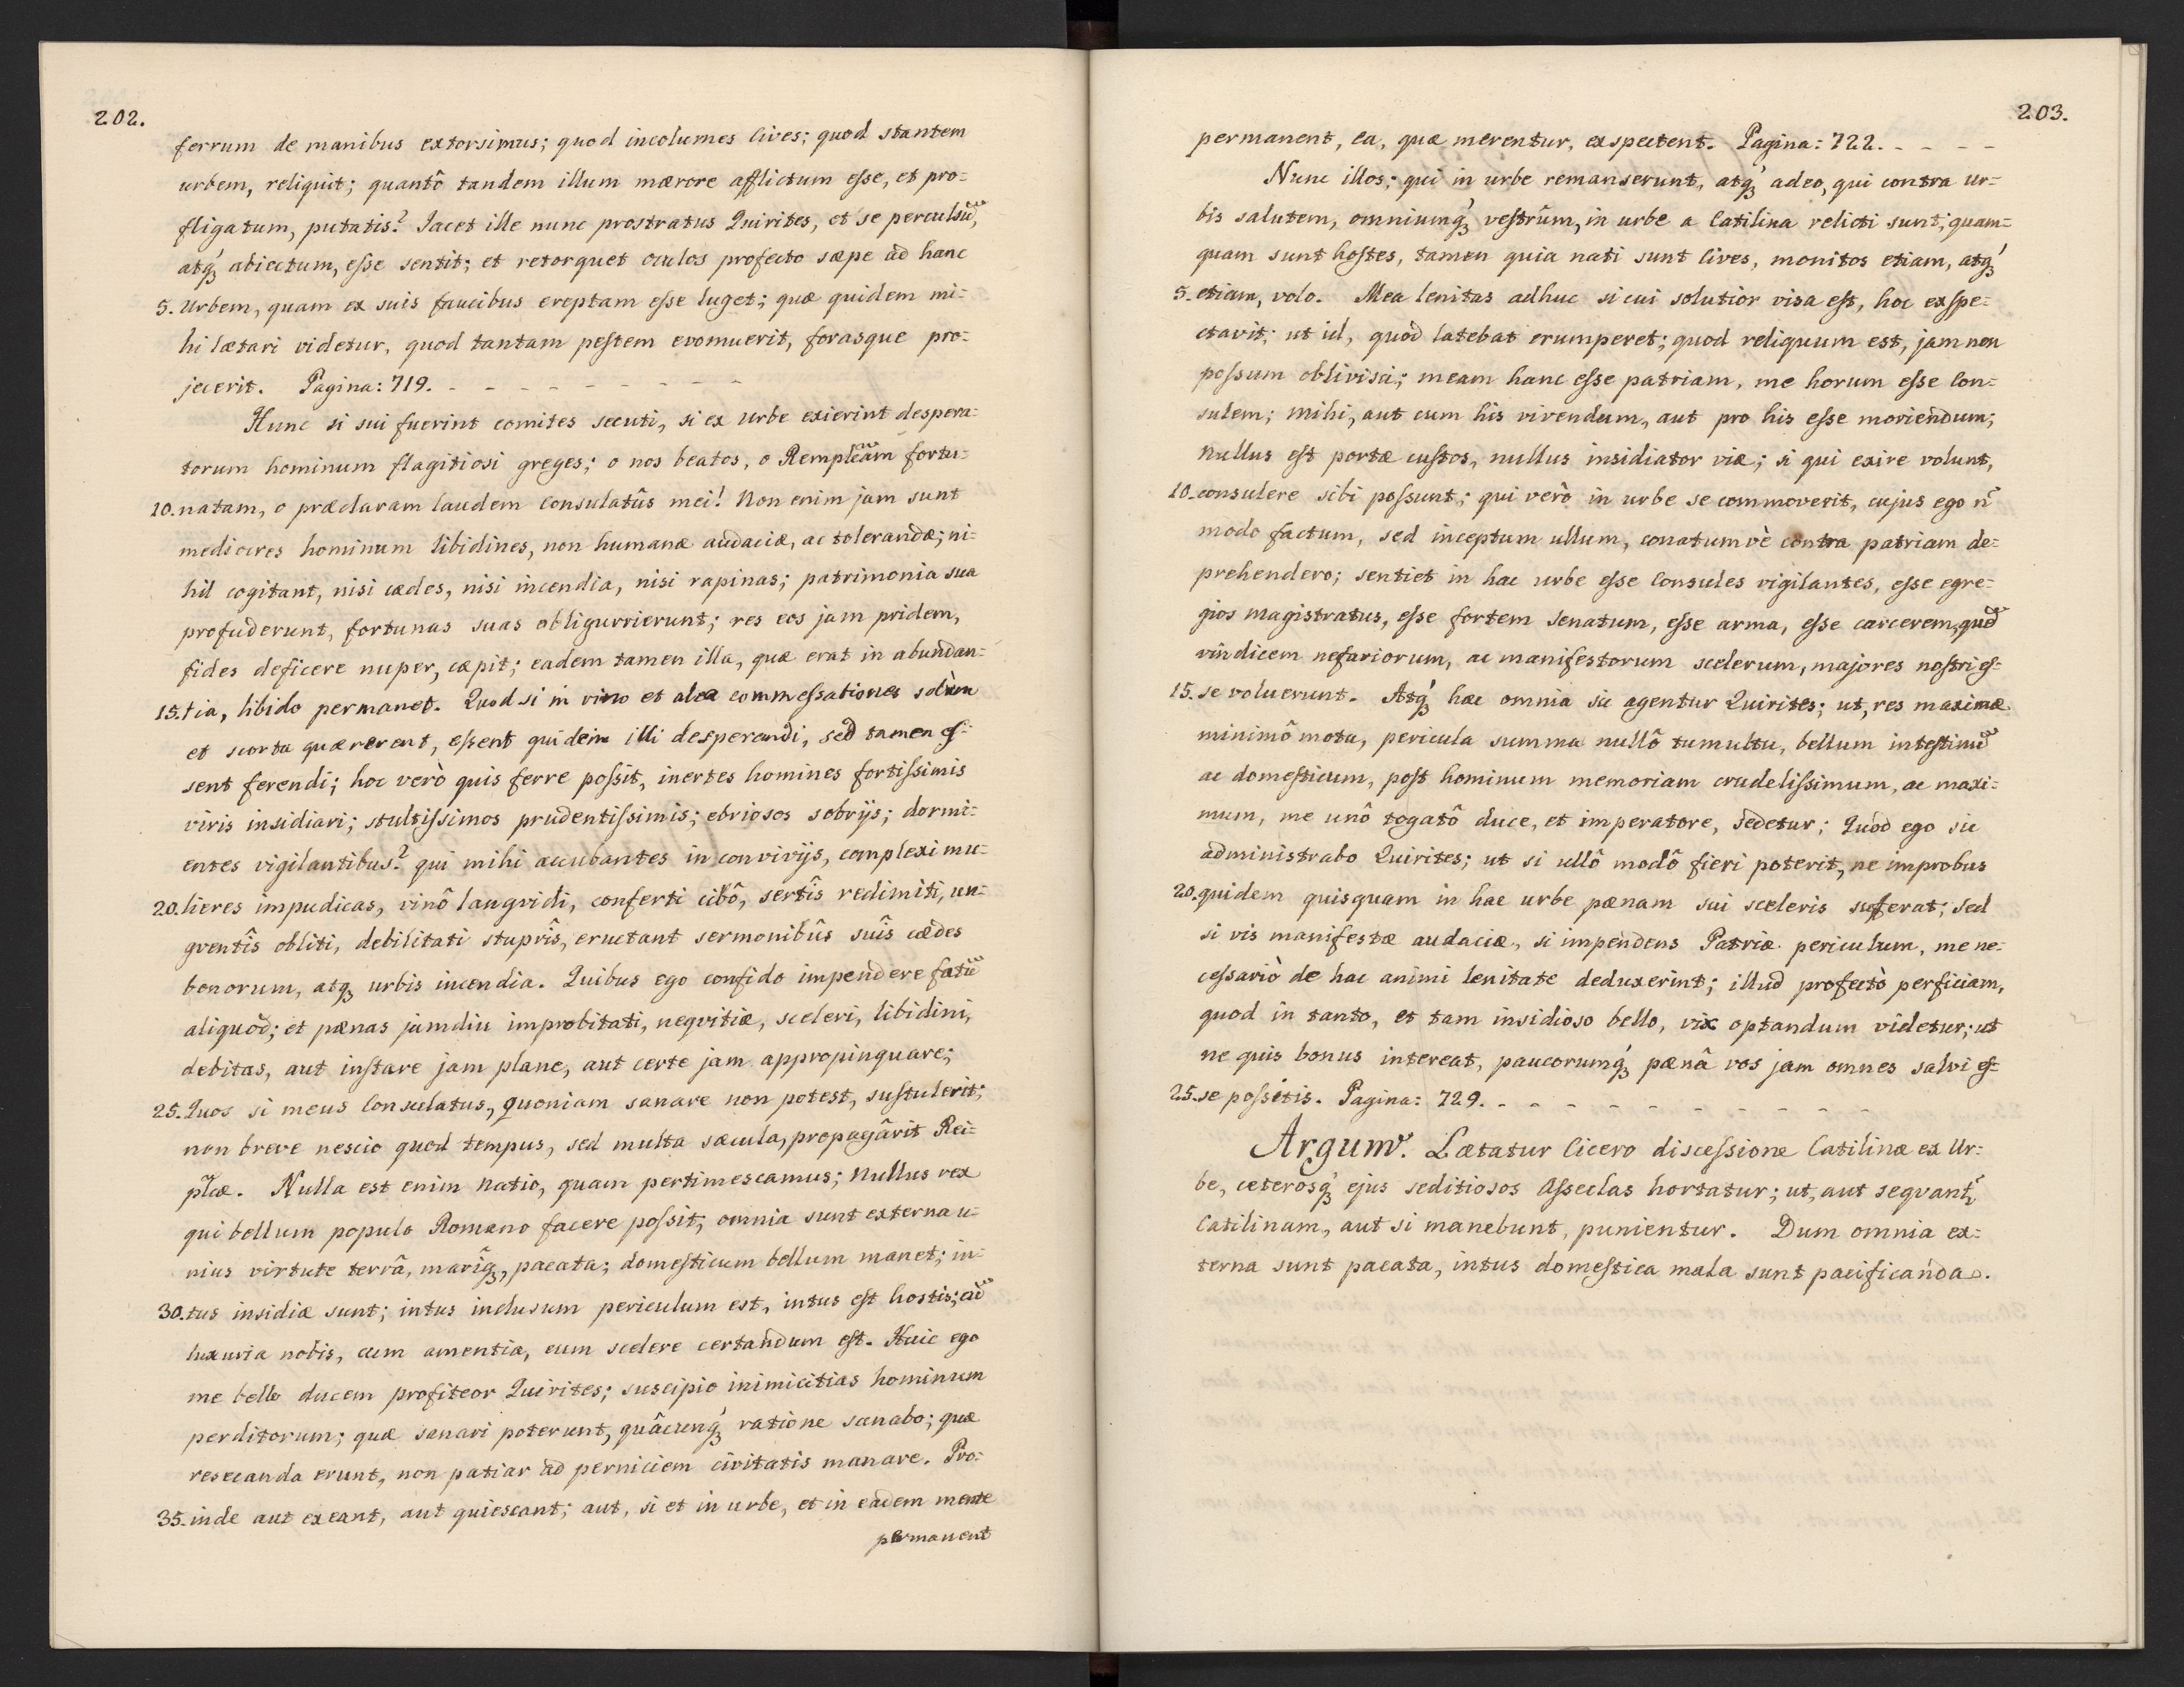 202.
ferrum de manibus extorsimus; quod incolumes Cives; quod stantem
urbem, reliquit; quantô tandem illum mærore afflictum eſse, et pro=
fligatum, putatis? Jacet ille nunc prostratus Quirites, et se perculsū,
atq́ꝫ abiectum, eſse sentit; et retorquet oculos profecto sæpe ad hanc
5. Urbem, quam ex suis faucibus ereptam eſse luget; quæ quidem mi=
hi lætari videtur, quod tantam peſtem evomuerit, forasque pro=
jecerit. Pagina: 719. - - - - - - - - -
Hunc si sui fuerint comites secuti, si ex Urbe exierint despera=
torum hominum flagitiosi greges; o nos beatos, o Rempl̃cam fortu=
10. natam, o præclaram laudem Consulatûs mei! Non enim jam sunt
mediocres hominum libidines, non humanæ audaciæ, ac tolerandæ; ni=
hil cogitant, nisi cædes, nisi incendia, nisi rapinas; patrimonia sua
profuderunt, fortunas suas obligurrierunt; res eos jam pridem,
fides deficere nuper, cæpit; eadem tamen illa, quæ erat in abundan=
15. tia, libido permanet. Quod si in vino et alea commeſsationes solùm
et scorta quærerent, eſsent quidem illi desperandi, sed tamen eſ=
sent ferendi; hoc verò quis ferre poſsit, inertes homines fortiſsimis
viris insidiari; stultiſsimos prudentiſsimis; ebriosos sobrijs; dormi=
entes vigilantibus? qui mihi accubantes in convivijs, complexi mu=
20. lieres impudicas, vinô langvidi, conferti cibô, sertîs redimiti, un=
gventîs obliti, debilitati stuprîs, eructant sermonibûs suîs cædes
bonorum, atqꝫ urbis incendia. Quibus ego confido impendere fatū
aliquod; et pænas jamdiu improbitati, neqvitiæ, sceleri, libidini,
debitas, aut inſtare jam plane, aut certe jam appropinquare;
25. Quos si meus Consulatus, quoniam sanare non potest, suſtulerit;
non breve nescio quod tempus, sed multa sæcula, propagârit Rei=
pl̃cæ. Nulla est enim natio, quam pertimescamus; nullus rex
qui bellum populo Romano facere poſsit, omnia sunt externa u=
nius virtute terrâ, mariq́ꝫ, pacata; domeſticum bellum manet; in=
30. tus insidiæ sunt; intus inclusum periculum est, intus eſt hostis; cū
luxuria nobis, cum amentia, cum scelere certandum eſt. Huic ego
me bello ducem profiteor Quirites; suscipio inimicitias hominum
perditorum; quæ sanari poterunt, quâcunq́ꝫ ratione sanabo; quæ
resecanda erunt, non patiar ad perniciem civitatis manare. Pro=
35. inde aut exeant, aut quiescant; aut, si et in urbe, et in eadem mente
permanent
203.
permanent, ea, quæ merentur, exspectent. Pagina: 722. - - - -
Nunc illos; qui in urbe remanserunt, atq́ꝫ adeo, qui contra ur=
bis salutem, omniumq́ꝫ veſtrûm, in urbe a Catilina relicti sunt; quam=
quam sunt hoſtes, tamen quia nati sunt Cives, monitos etiam, atq́ꝫ
5. etiam, volo. Mea lenitas adhuc si cui solutior visa eſt, hoc exſpe=
ctavit; ut id, quod latebat erumperet; quod reliquum est, jam non
poſsum oblivisci; meam hanc eſse patriam, me horum eſse Con=
sulem; mihi, aut cum his vivendum, aut pro his eſse moriendum;
nullus eſt portæ cuſtos, nullus insidiator viæ; si qui exire volunt,
10. consulere sibi poſsunt; qui verò in urbe se commoverit, cujus ego ñ
modo factum, sed inceptum ullum, conatumvè contra patriam de=
prehendero; sentiet in hac urbe eſse Consules vigilantes, eſse egre=
gios magistratus, eſse fortem Senatum, eſse arma, eſse carcerem, quē
vindicem nefariorum, ac manifestorum scelerum, majores noſtri eſ=
15. se voluerunt. Atq́ꝫ hæc omnia sic agentur Quirites; ut, res maximæ
minimô motu, pericula summa nullô tumultu, bellum inteſtinū
ac domeſticum, poſt hominum memoriam crudeliſsimum, ac maxi=
mum, me unô togatô duce, et imperatore, sedetur; Quod ego sic
administrabo Quirites; ut si ullô modô fieri poterit, ne improbus
20. quidem quisquam in hac urbe pænam sui sceleris sufferat; sed
si vis manifestæ audaciæ, si impendens Patriæ periculum, me ne=
ceſsariò de hac animi lenitate deduxerint; illud profectò perficiam,
quod in tanto, et tam insidioso bello, vix optandum videtur; ut
ne quis bonus intereat, paucorumq́ꝫ pænâ vos jam omnes salvi eſ=
25. se poſsitis. Pagina: 729. - - - - - - - - - -
Argumᵗ. Lætatur Cicero disceſsione Catilinæ ex Ur=
be, ceterosq́ꝫ ejus seditiosos Aſseclas hortatur; ut, aut seqvantr̃
Catilinam, aut si manebunt, punientur. Dum omnia ex=
terna sunt pacata, intus domeſtica mala sunt pacificanda.